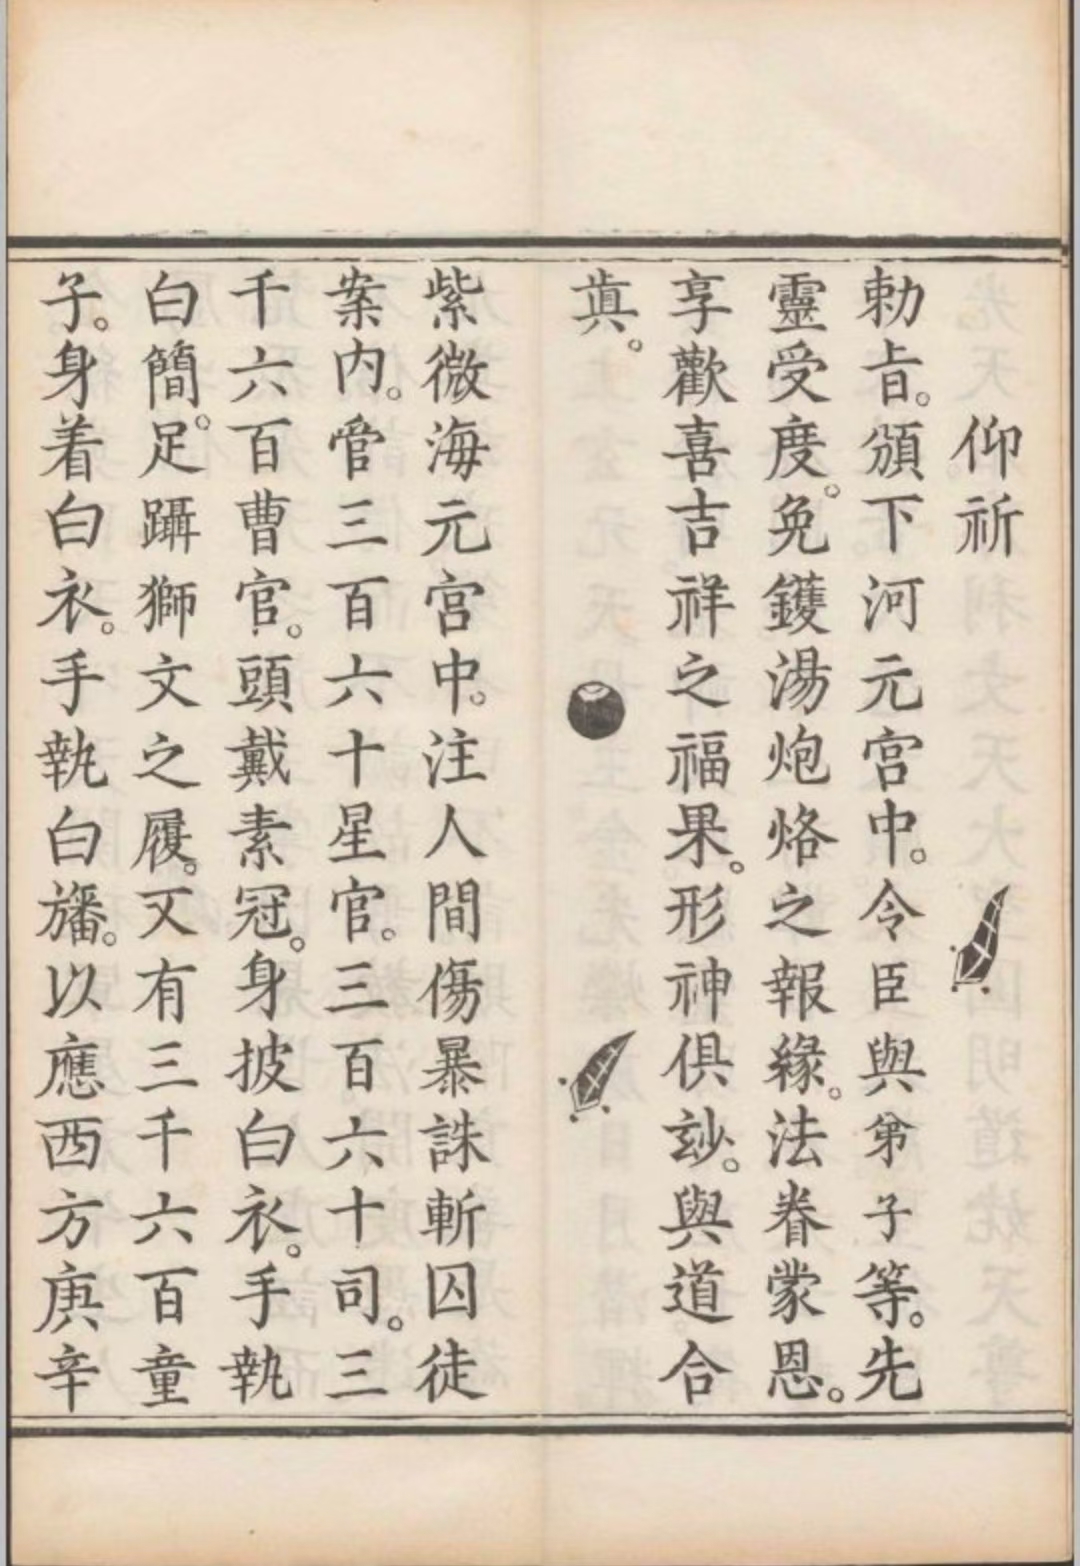 仰祈
勅旨。頒下河元宮中。令臣與弟子等。先
靈受度。免鑊湯炮烙之報緣。法眷蒙恩。
享歡喜吉祥之福果。形神俱玅。與道合
真。
紫微海元宮中。注人間傷暴誅斬囚徒
案内。管三百六十星官。三百六十司。三
千六百曹官。頭戴素冠。身披白衣。手執
白簡。足躡獅文之履。又有三千六百童
子。身着白衣。手執白旛。以應西方庚辛